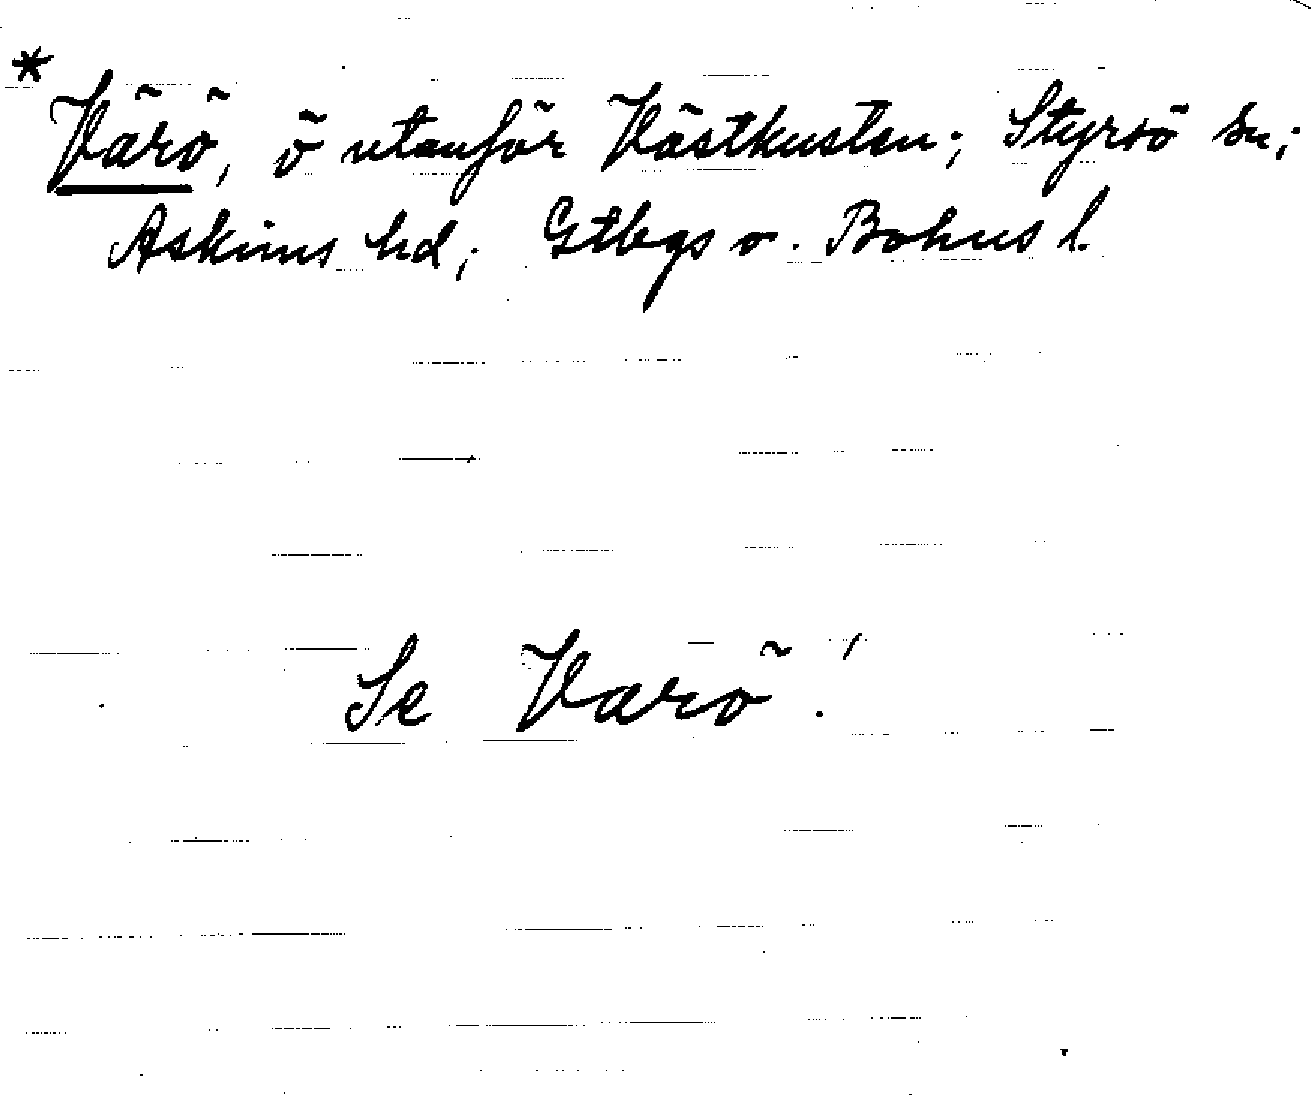 *
Värö, ö utanför Västkusten; Styrsö sn;
Askims hd; Gtbgs o. Bohus l.
Se Varö!